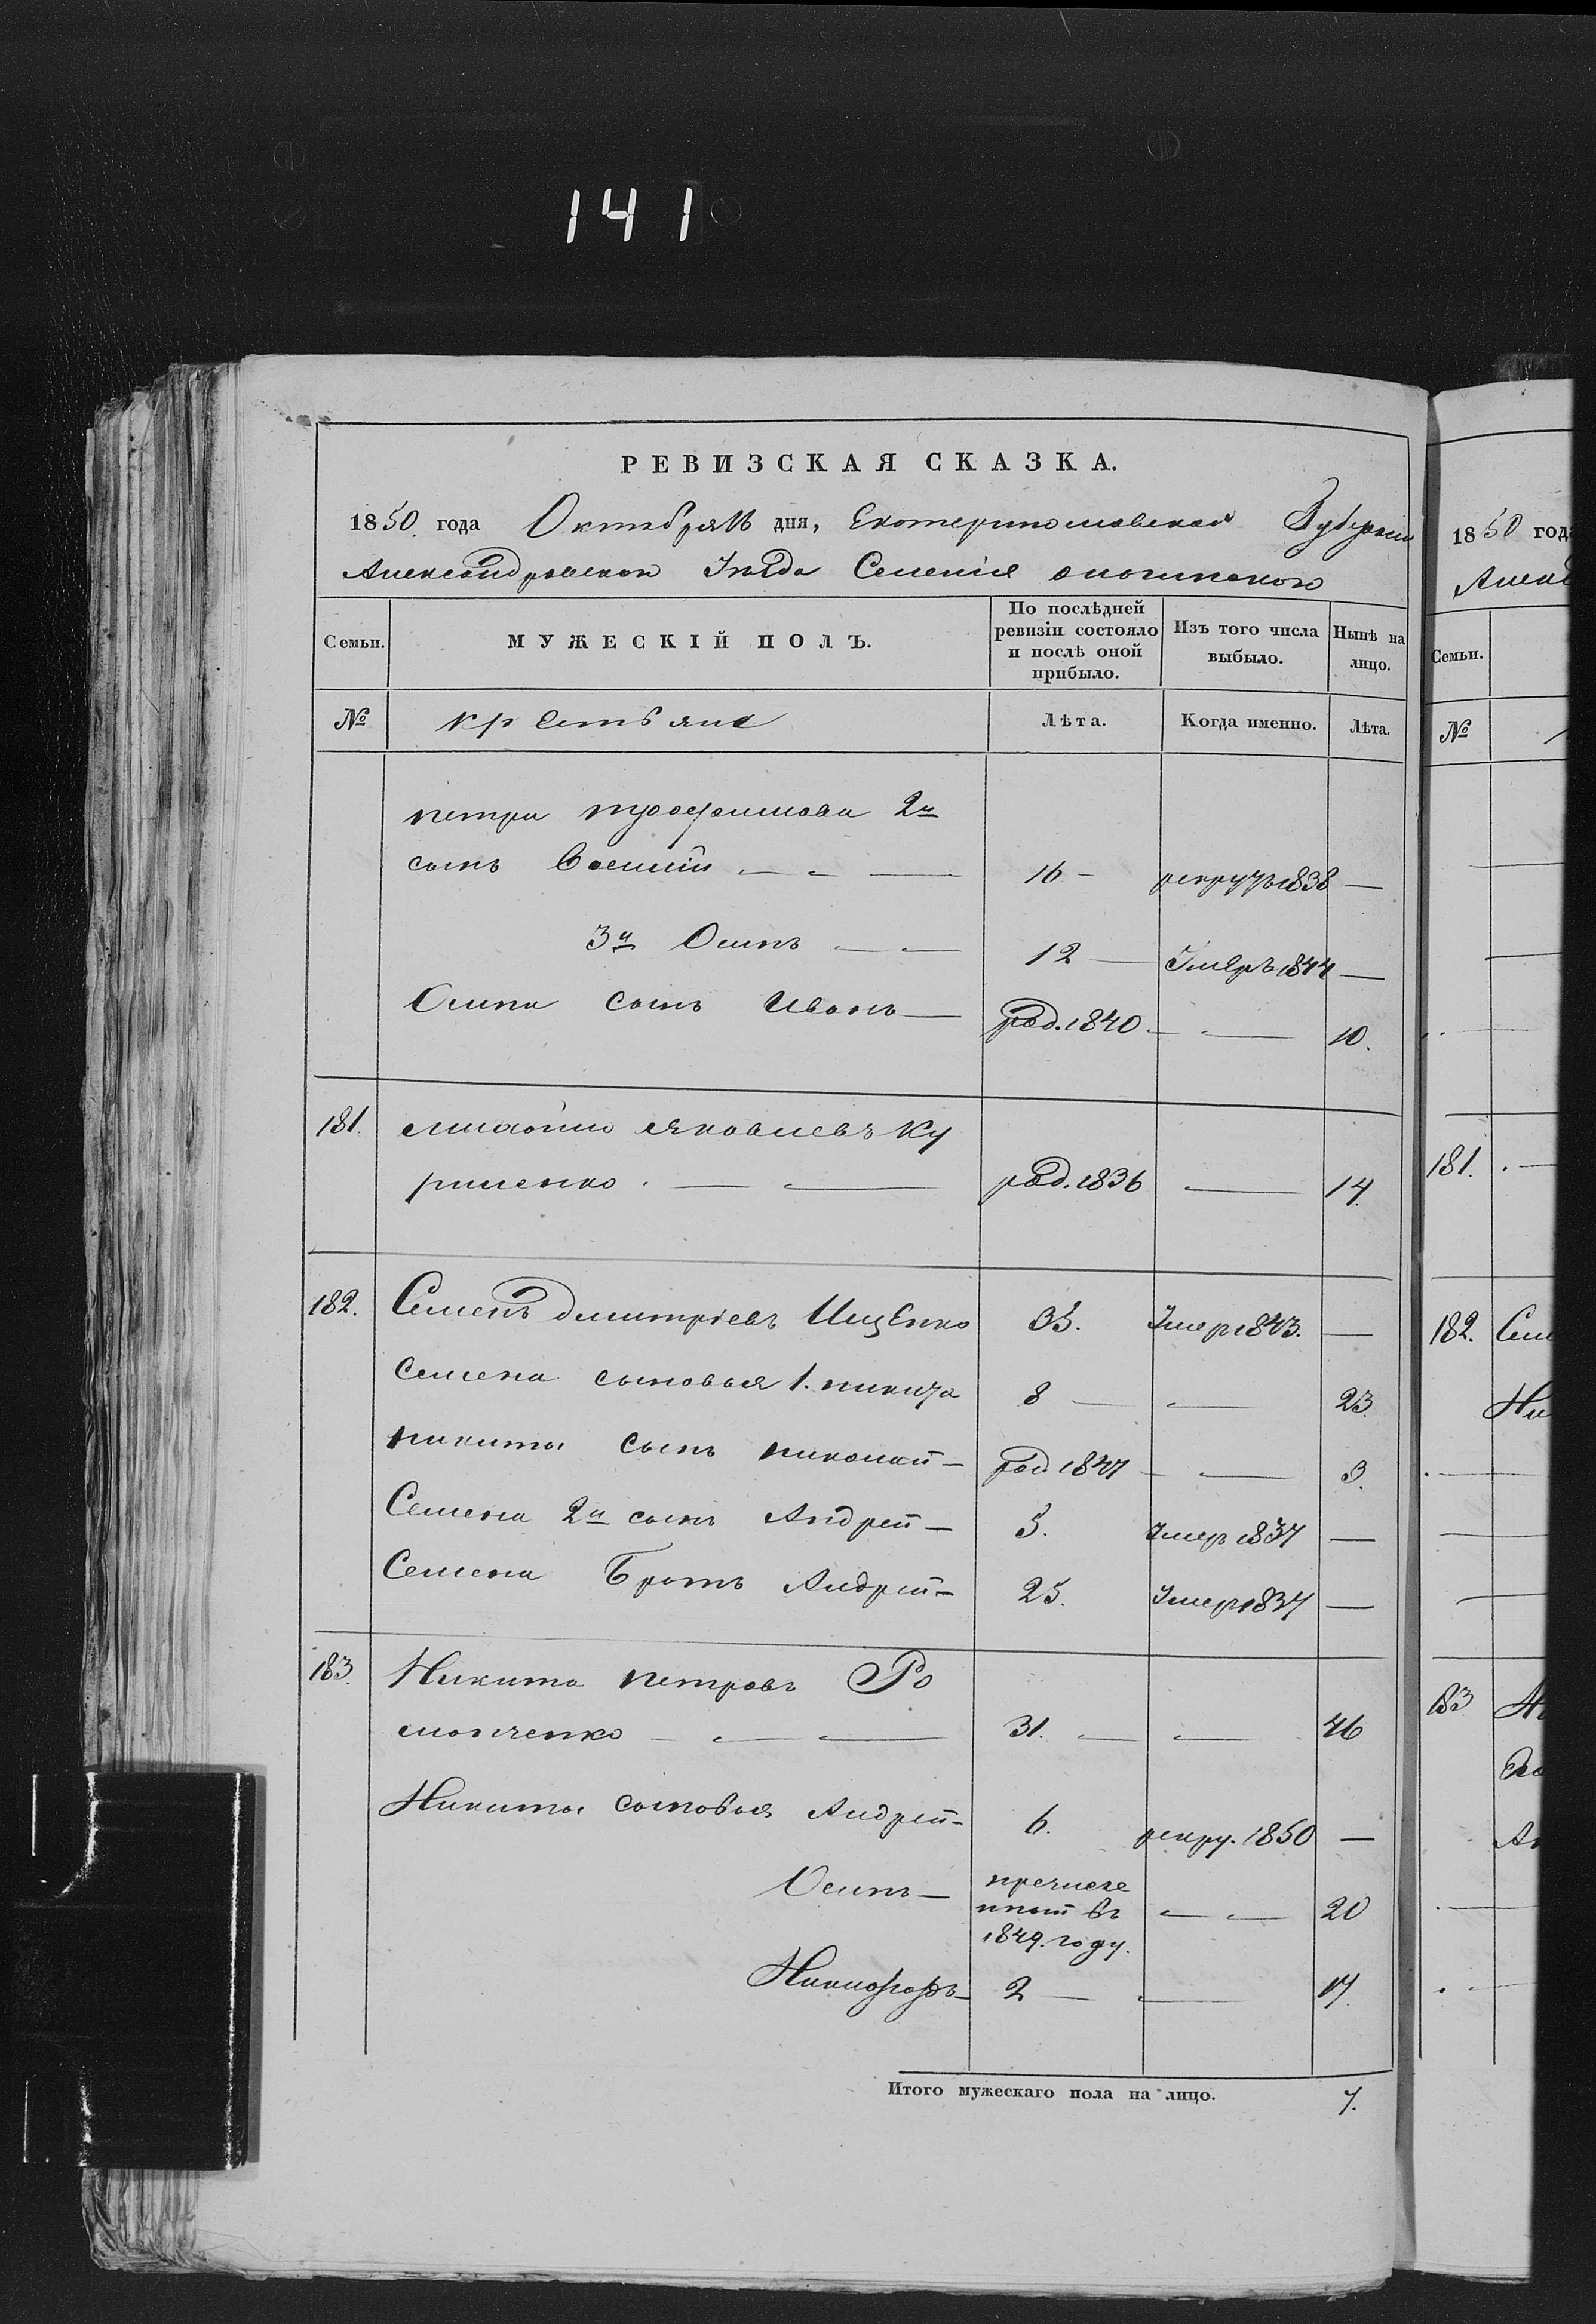 141
РЕВИЗСКАЯ СКАЗКА.
1850 года Октября 16 дня, Екатеринославской Губерніи
Александровскаго Уѣзда Селенія
Семьи. МУЖЕСКІЙ ПОЛЪ. По послѣдней ревизіи состояло и послѣ оной прибыло. Изъ того числа выбыло. Нынѣ на лицо.
№ крестьяне Лѣта. Когда именно. Лѣта.
петра трофимова 2й
сынъ Василій — 16 — рекрутъ 1838 —
3й Осипъ — 12 — Умеръ 1844 —
Осипа сынъ Иванъ — род. 1840. — 10.
181. михайло яковлевъ Ку
риленко. — род. 1836 — 14.
182. Семенъ дмитріевъ Ищенко 35. Умер 1843. —
Семена сыновья 1. никита 8 — 23.
никиты сынъ николай — род 1847 — 3.
Семена 2й сынъ Андрей — 5. Умер 1837 —
Семена Братъ Андрей — 25. Умер 1837 —
183. Никита петровъ Ро
манченко — 31. — 46
Никиты сыновья Андрей — 6. рекру. 1850 —
Осипъ — пречисле
нный въ — 20
1849. году.
Никифоръ — 2 — 17.
Итого мужескаго пола на лицо. 7.
1850 года
Алекс
Семьи.
№
181.
182. Сем
Ни
183